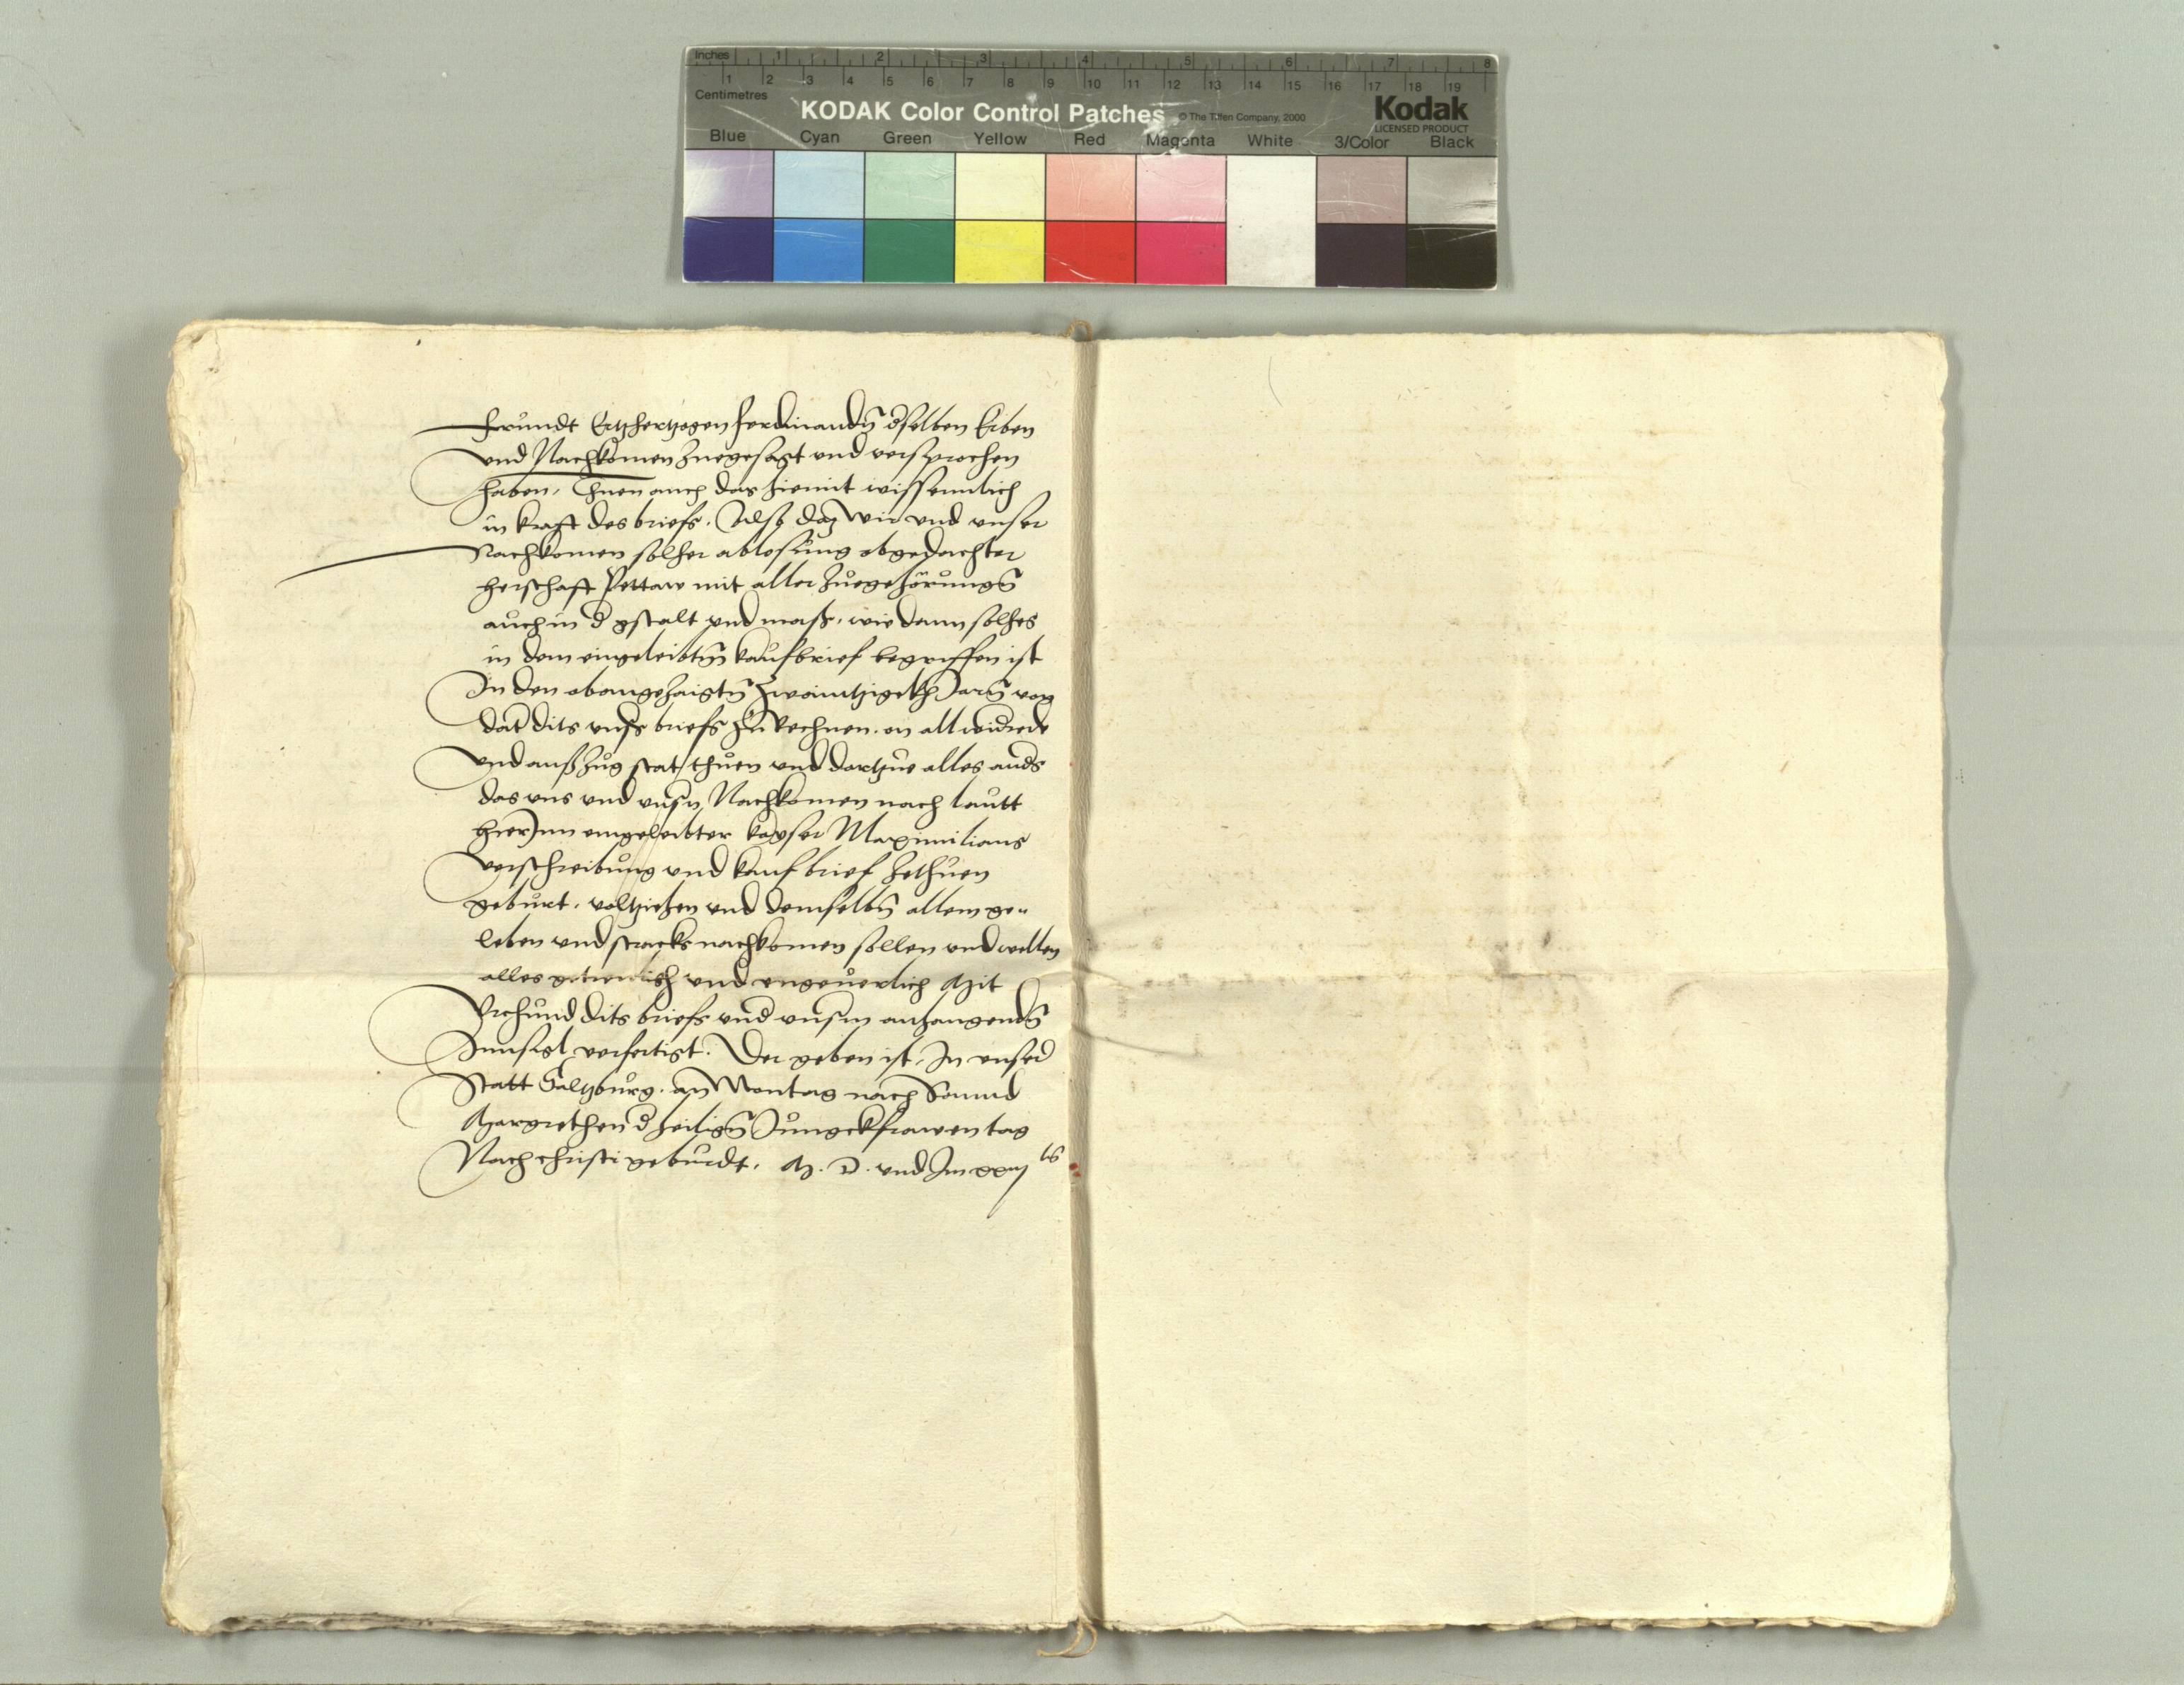 Inches 1 2 3 4 5 6 7 8
1 2 3 4 5 6 7 8 9 10 11 12 13 14 15 16 17 18 19
Centimetres
KODAK Color Control Patches © The Tiffen Company, 2000 Kodak
LICENSED PRODUCT
Blue Cyan Green Yellow Red Magenta White 3/Color Black
frundt Ertzhertzogen ferdinandn̄ dselben Erben
und Nachkomen zuegesagt und versprochen
haben, thuen auch das hiemit wissenntlich
in kraft des briefs. Also daz wir und unser
Nachkomen solher ablosung obgedachter
herschaft Pettaw mit aller zuegehörungn̄
auch in d gstalt und mass, wie dann solhes
in dem eingeleibtn̄ kaufbrief begriffen ist
In den obangezaigtn̄ Jarn̄ von
dat dits unss briefs zu rechnen. on all widrede
und ausszug stat thuen und dartzue alles annds
das uns und unsn Nachkomen nach lautt
hier Inn eingeleibter kayser Maximilians
verschreibung und kauf brief zethuen
geburt, voltziehen und demselbn̄ allem ge„
leben und stracks nachkomen sollen und wellen
alles getrewlich und ungeuerlich Mit
Urchund dits briefs und unsm anhangendn̄
Innsigl verfertigt. Der geben ist, In unser
Statt Saltzburg. an Montag nach Sannd
Margrethen d heilign̄ Jungckfrawen tag
Nach christi geburdt. M. D. und Im xxiij ts